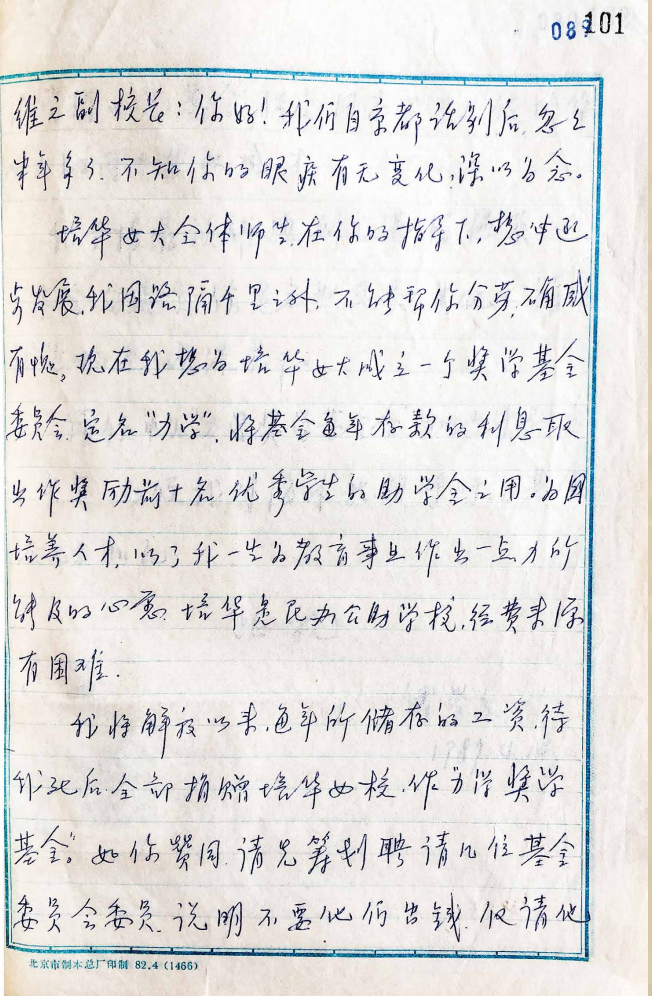 089 101
维之副校长：你好！我们自京都话别后，忽之
半年多了，不知你的眼疾有无变化，深以为念。
培华女大全体师生，在你的指导下，想中迅
步发展，我因路隔千里之外，不能帮你分劳，确感
有愧。现在我想为培华女大成立一个奖学基金
委员会，定名"力学"，将基金每年存款的利息取
出作奖励前十名优秀学生的助学金之用。为国
培养人才，以了我一生为教育事业作出一点力所
能及的心愿。培华是民办公助学校，经费来源
有困难.
我将解放以来，每年所储存的工资，待
我死后，全部捐赠培华女校，作"力学奖学
基金"。如你赞同，请先筹划聘请几位基金
委员会委员，说明不要他们出钱，仅请他
北京市制本总厂印制 82.4 (1466)